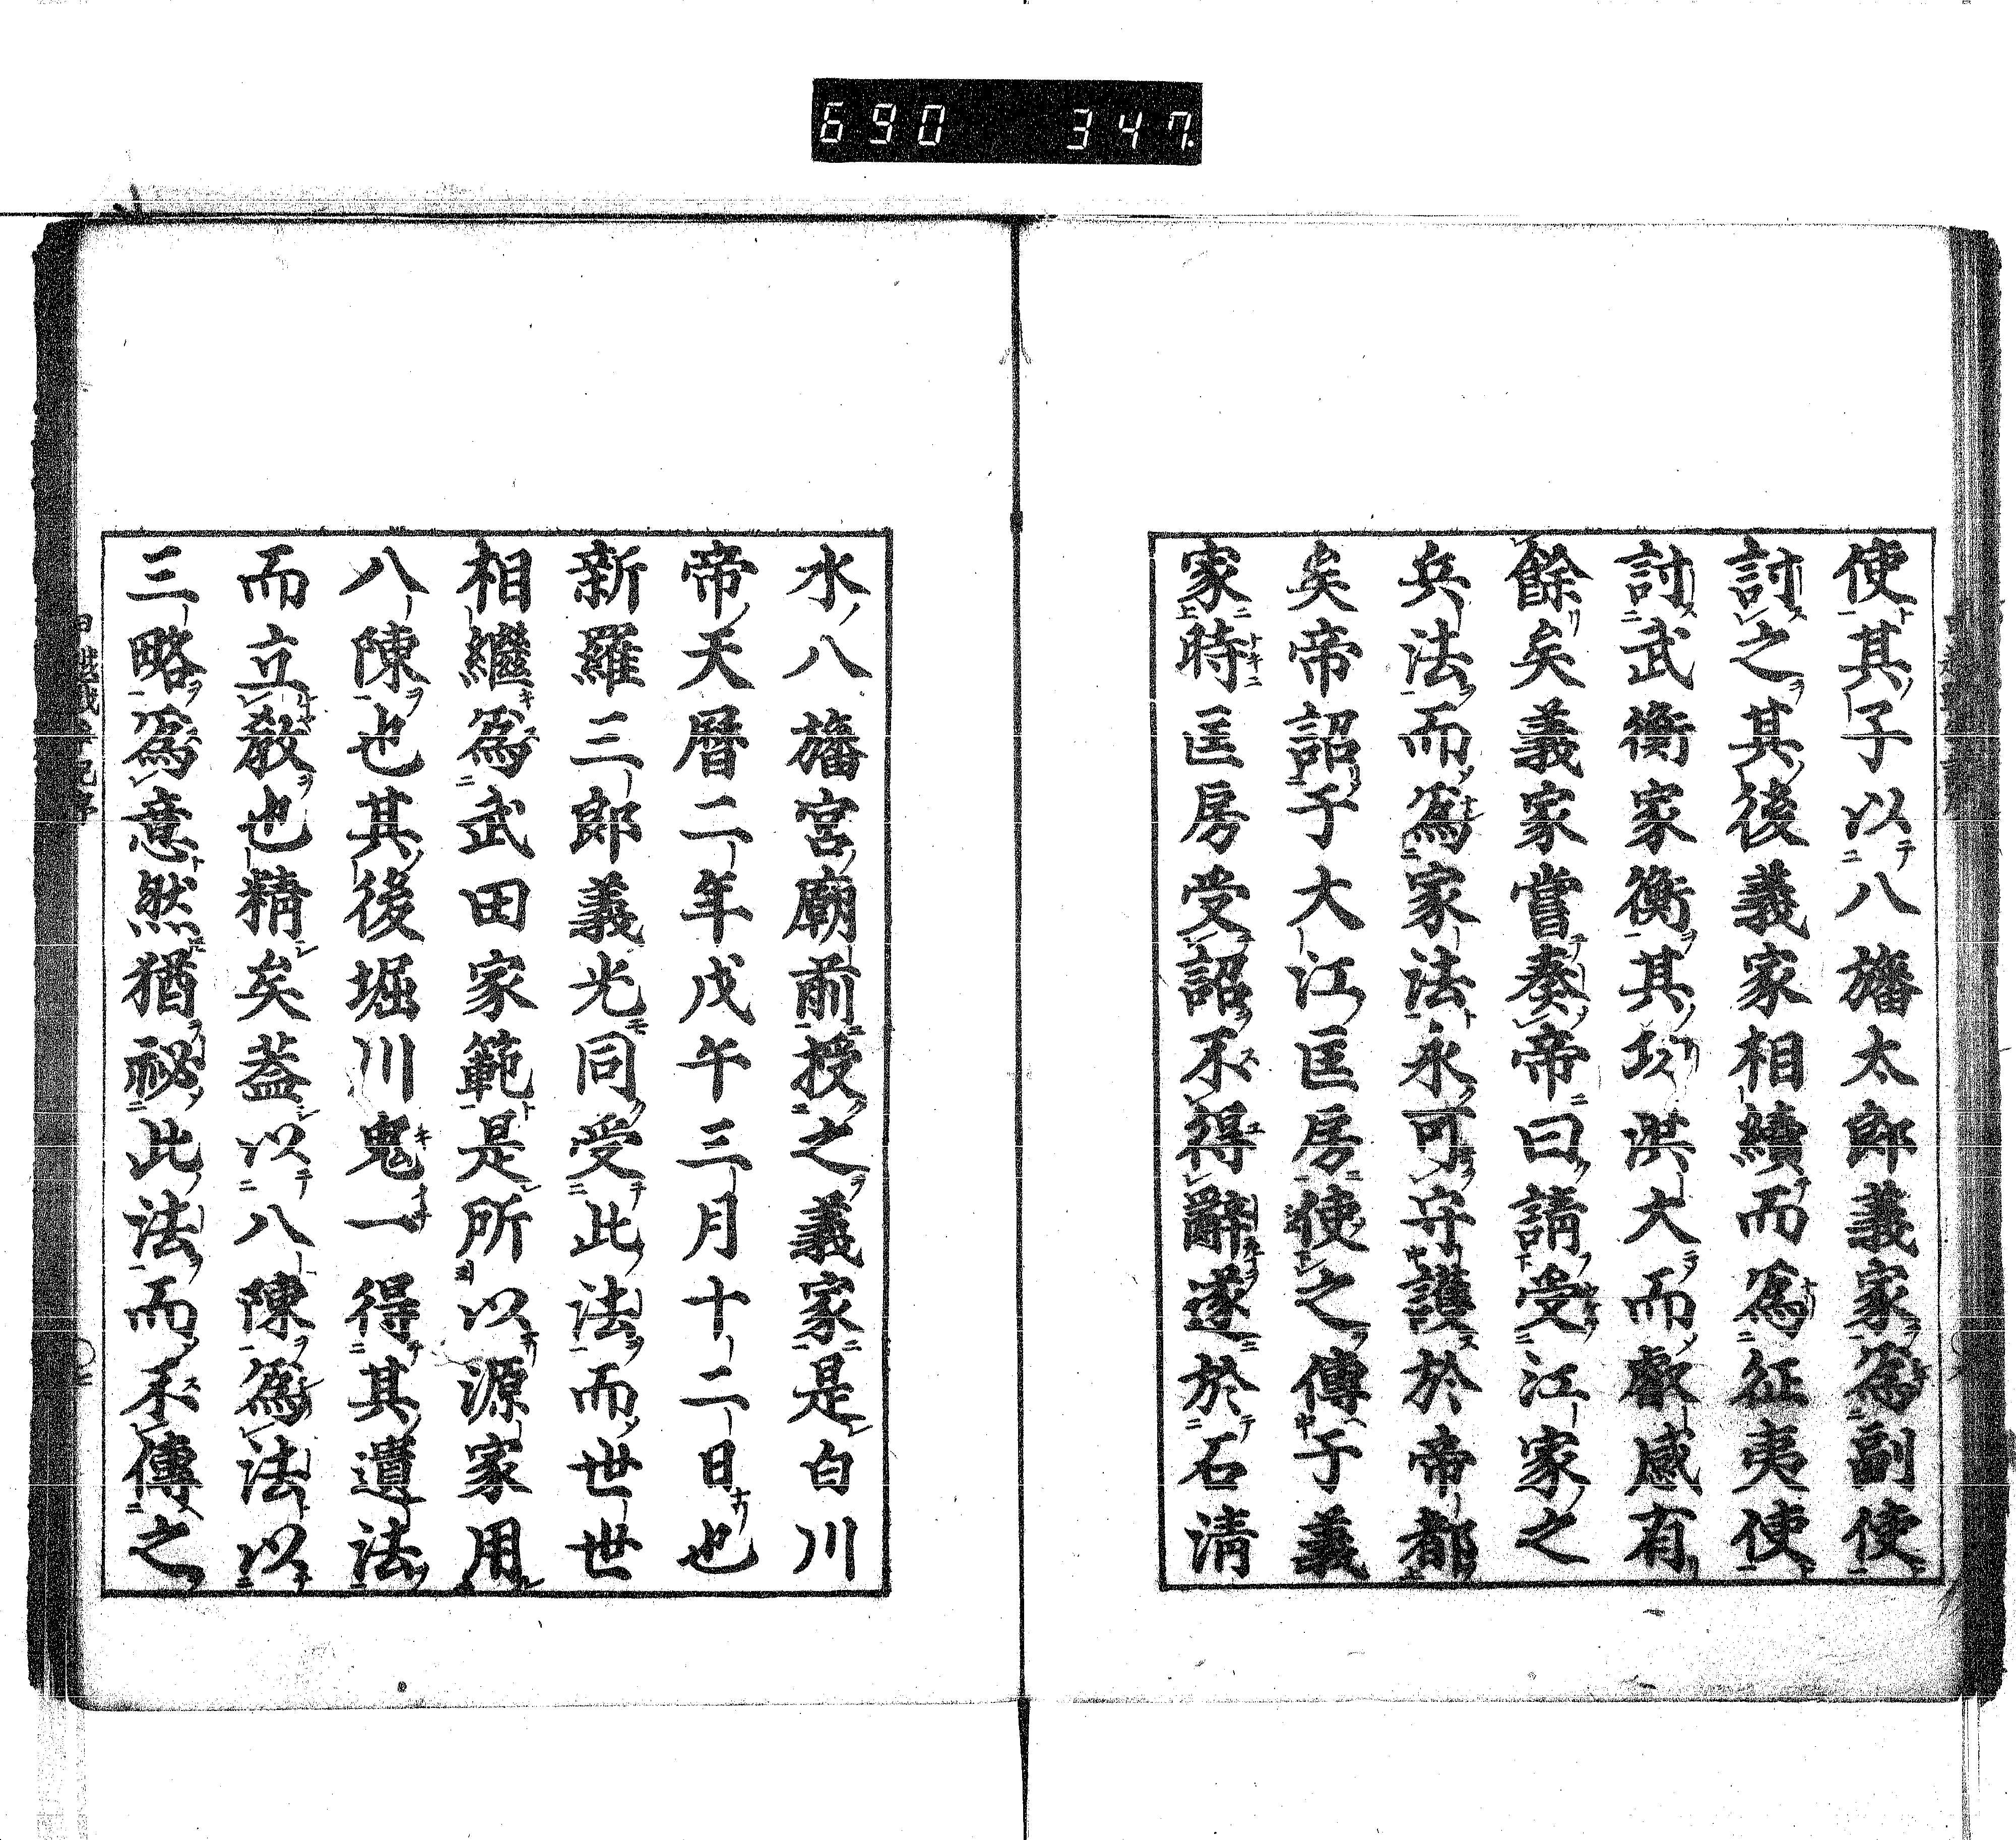 690 347
使其子以八旛太郎義家爲副使
討之其後義家相續而爲征夷使
討武衡家衡其功洪大而叡感有
餘矣義家嘗奏帝曰請受江家之
兵法而爲家法永可守護於帝都
矣帝詔于大江匡房使之傳于義
家時匡房受詔不得辭遂於石清
水八旛宮廟前授之義家是白川
帝天曆二年戊午三月十二日也
新羅三郎義光同受此法而世世
相繼爲武田家範是所以源家用
八陳也其後堀川鬼一得其遺法
而立教也精矣蓋以八陳爲法以
三略爲意然猶祕此法而不傳之